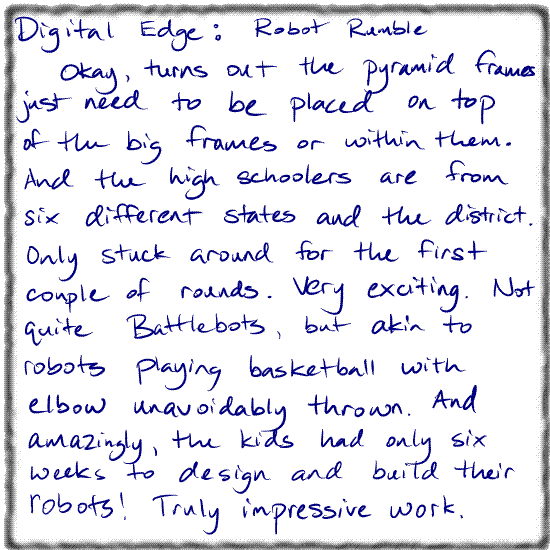 Digital Edge: Robot Rumble
Okay, turns out the pyramid frames
just need to be placed on top
of the big frames or within them.
And the high schoolers are from
six different states and the district.
Only stuck around for the first
couple of rounds. Very exciting. Not
quite Battlebots, but akin to
robots playing basketball with
elbow unavoidably thrown. And
amazingly, the kids had only six
weeks to design and build their
robots! Truly impressive work.